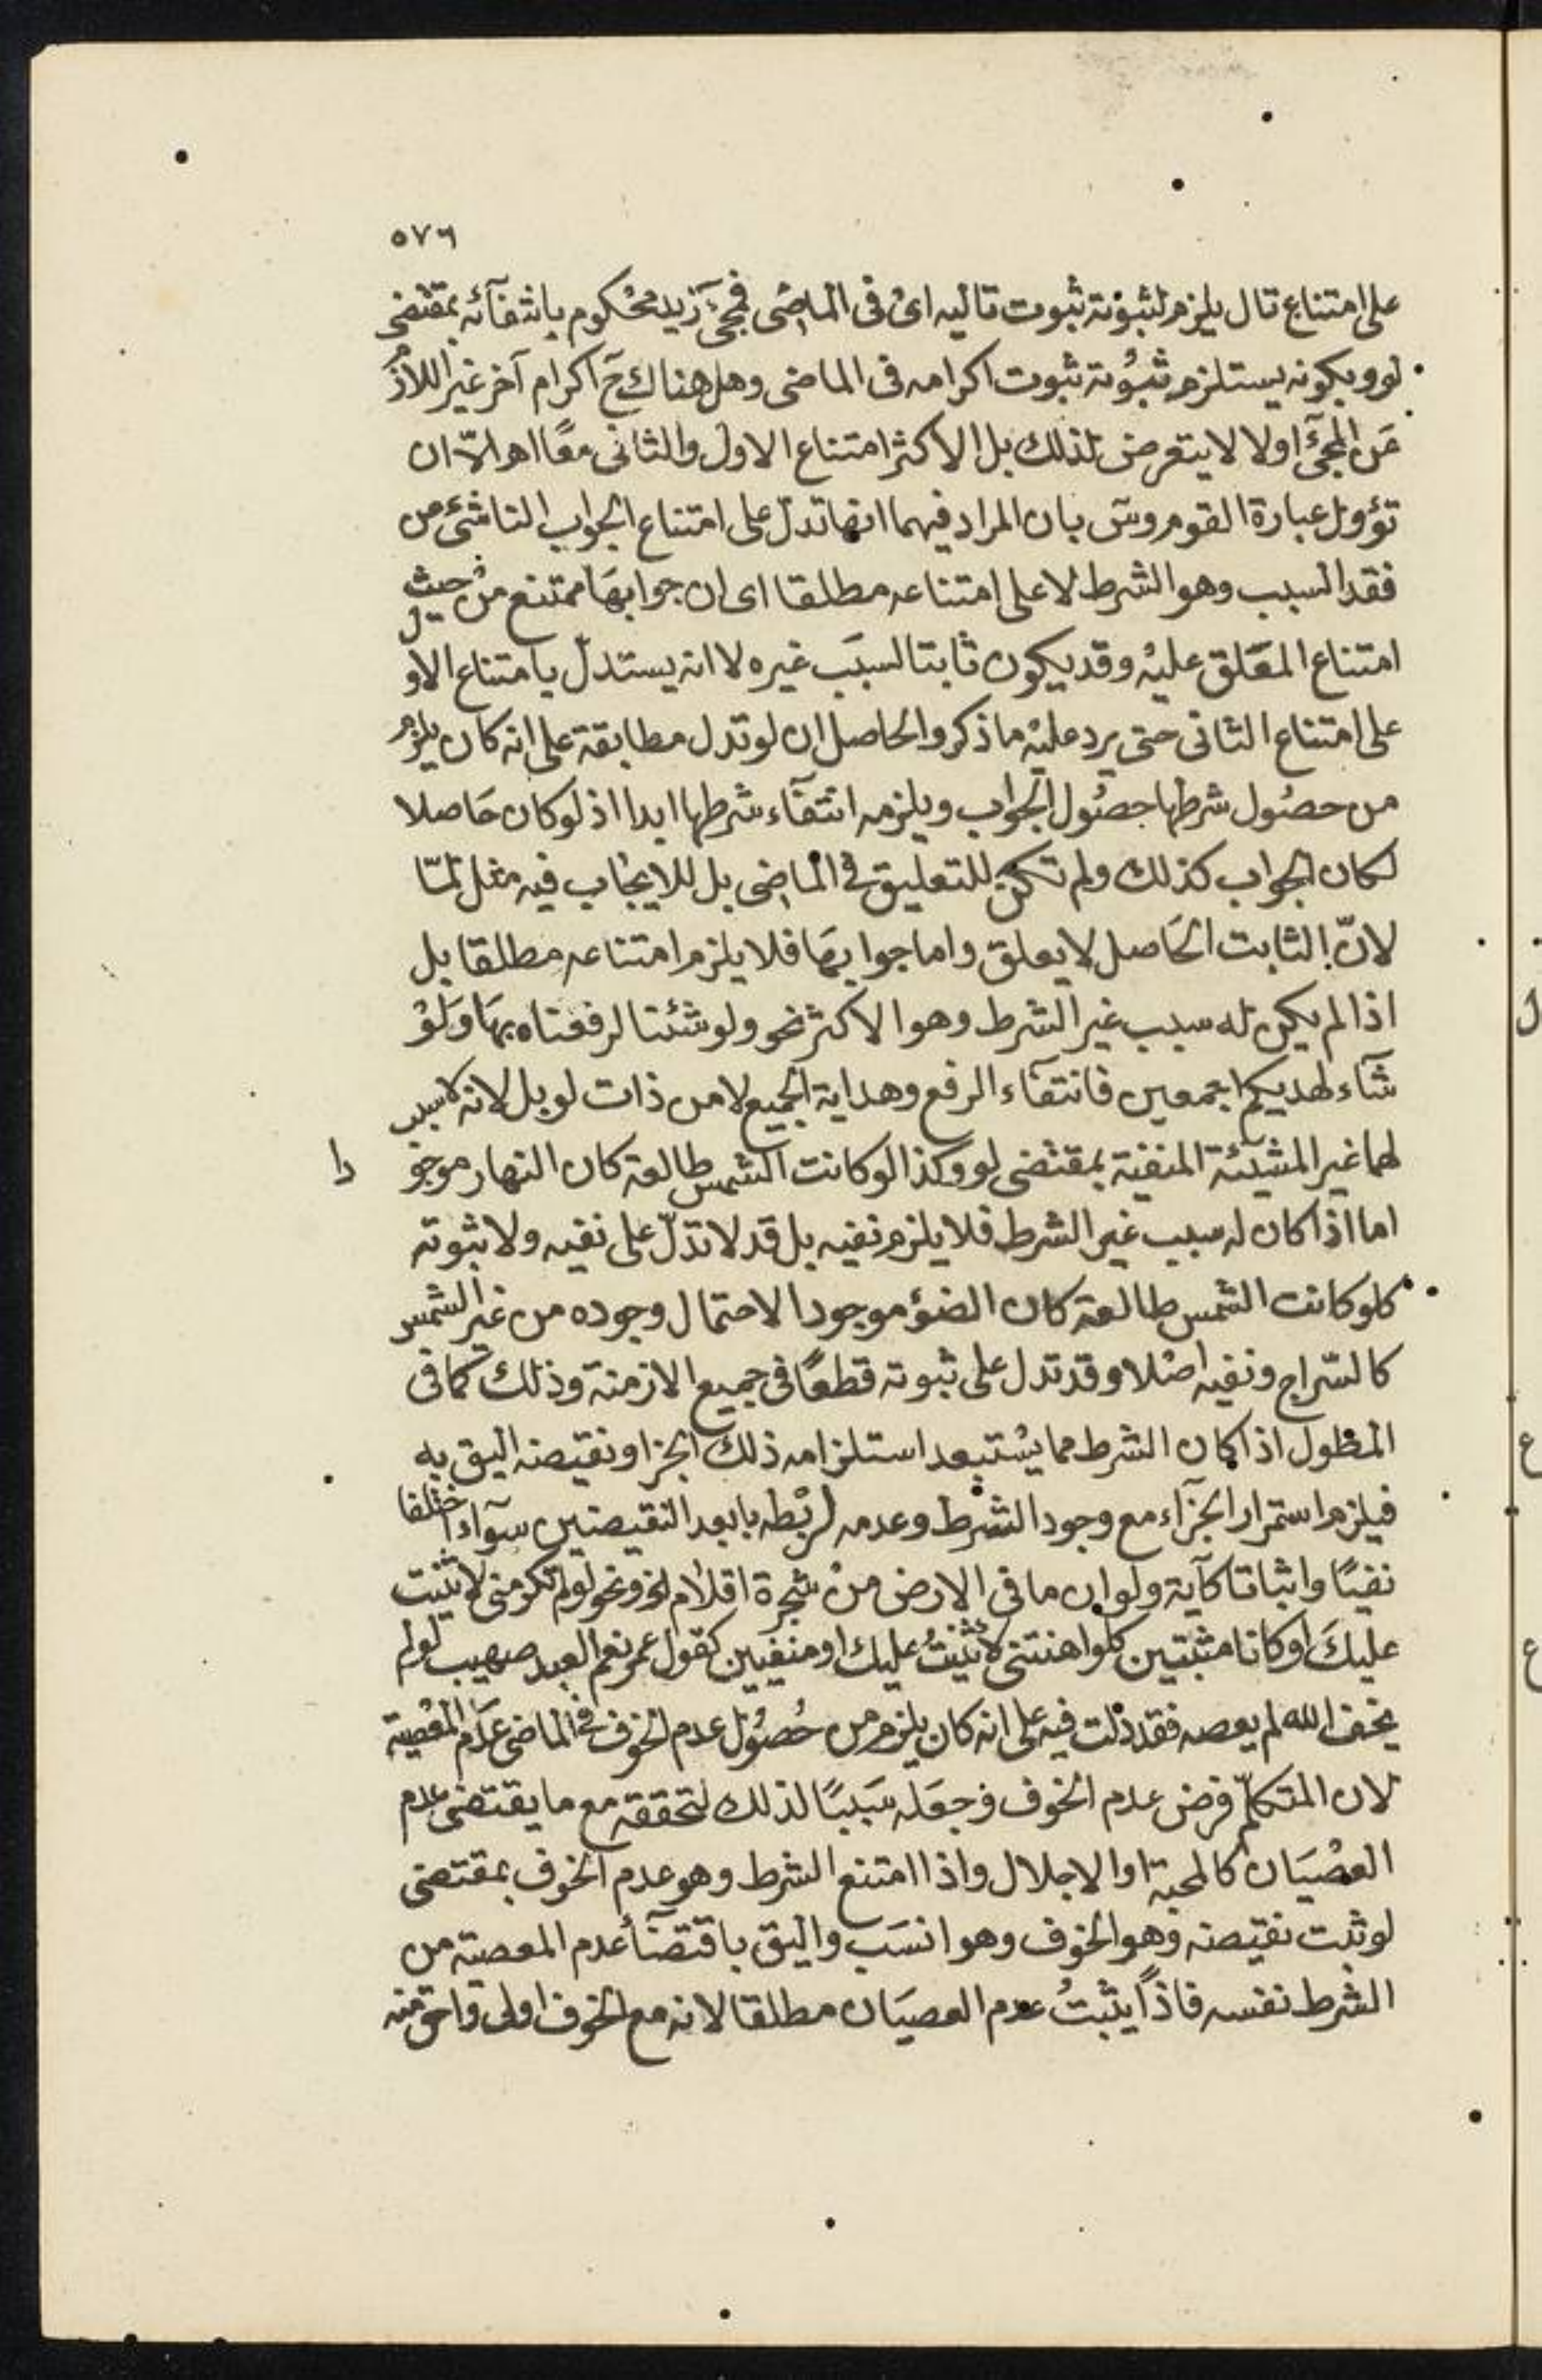 ٥٧٦
على امتناع تال يلزم لثبوته ثبوت تاليه اى فى الماضى فمجئ زيد محكوم بانتفائه بمقتضى
لو وبكونه يستلزم ثبوته ثبوت اكرامه فى الماضى وهل هناك ح اكرام آخر غير اللازم
عن المجئ اولا لا يتعرض لذلك بل الاكثر امتناع الاول والثانى معًا اهـ الّا ان
تؤول عبارة القوم وسَ بان المراد فيهما انها تدلّ على امتناع الجواب الناشئ من
فقد السبب وهو الشرط لا على امتناعه مطلقا اى ان جوابها ممتنع من حيث
امتناع المعَلق عليه وقد يكون ثابتا لسبَب غيره لا انه يستدلّ بامتناع الاول
على امتناع الثانى حتى يرد عليه ما ذكر والحاصل ان لو تدل مطابقة على انه كان يلزم
من حصُول شرطها حصُول الجواب ويلزمه انتفآء شرطها ابدا اذ لو كان حَاصلا
لكان الجواب كذلك ولم تكن للتعليق فى الماضى بل للايجَاب فيه مثل لمّا
لانّ الثابت الحَاصل لا يعلق واما جوابهَا فلا يلزم امتناعه مطلقا بل
اذا لم يكن له سبب غير الشرط وهو الاكثر نحو ولو شئنا لرفعناه بهَا وَلَوْ
شآء لهديكم اجمعين فانتفآء الرفع وهداية الجميع لا من ذات لو بل لانه لا سبب
لهما غير المشيئة المنفية بمقتضى لو وكذا لو كانت الشمس طالعة كان النهار موجودا
اما اذا كان له سبب غير الشرط فلا يلزم نفيه بل قد لا تدلّ على نفيه ولا ثبوته
كلو كانت الشمس طالعة كان الضوؤ موجودا لاحتمال وجوده من غير الشمس
كالسّراج ونفيه اصْلا وقد تدل على ثبوته قطعًا فى جميع الازمنة وذلك كما فى
المطول اذا كان الشرط مما يسْتبعد استلزامه ذلك الجزا ونقيضه اليق به
فيلزم استمرار الجزآء مع وجود الشّرط وعدمه لربْطه بابعد النقيضين سوآء اختلفا
نفيًا واثباتا كآية ولو ان ما فى الارض منْ شجرة اقلام الخ ونحو لو لم تكرمنى لاثنيت
عليكَ او كانا مثبتين كلو اهنتنى لاثنيتُ عليك او منفيين كقول عمر نعم العبد صهيب لو لم
يخف الله لم يعصه فقد دلت فيه على انه كان يلزم من حُصُول عدم الخوف فى الماضى عَدَم المعْصية
لان المتكلّم فرض عدم الخوف وجعَله سَببًا لذلك لتحققه مع ما يقتضى عدم
العصْيَان كالمحبة او الاجلال واذا امتنع الشرط وهو عدم الخوف بمقتضى
لو ثبت نقيضه وهو الخوف وهو انسَب واليق باقتضآء عدم المعصية من
الشرط نفسه فاذًا يثبتُ عدم العصيَان مطلقا لانه مع الخوف اولى واحق منه